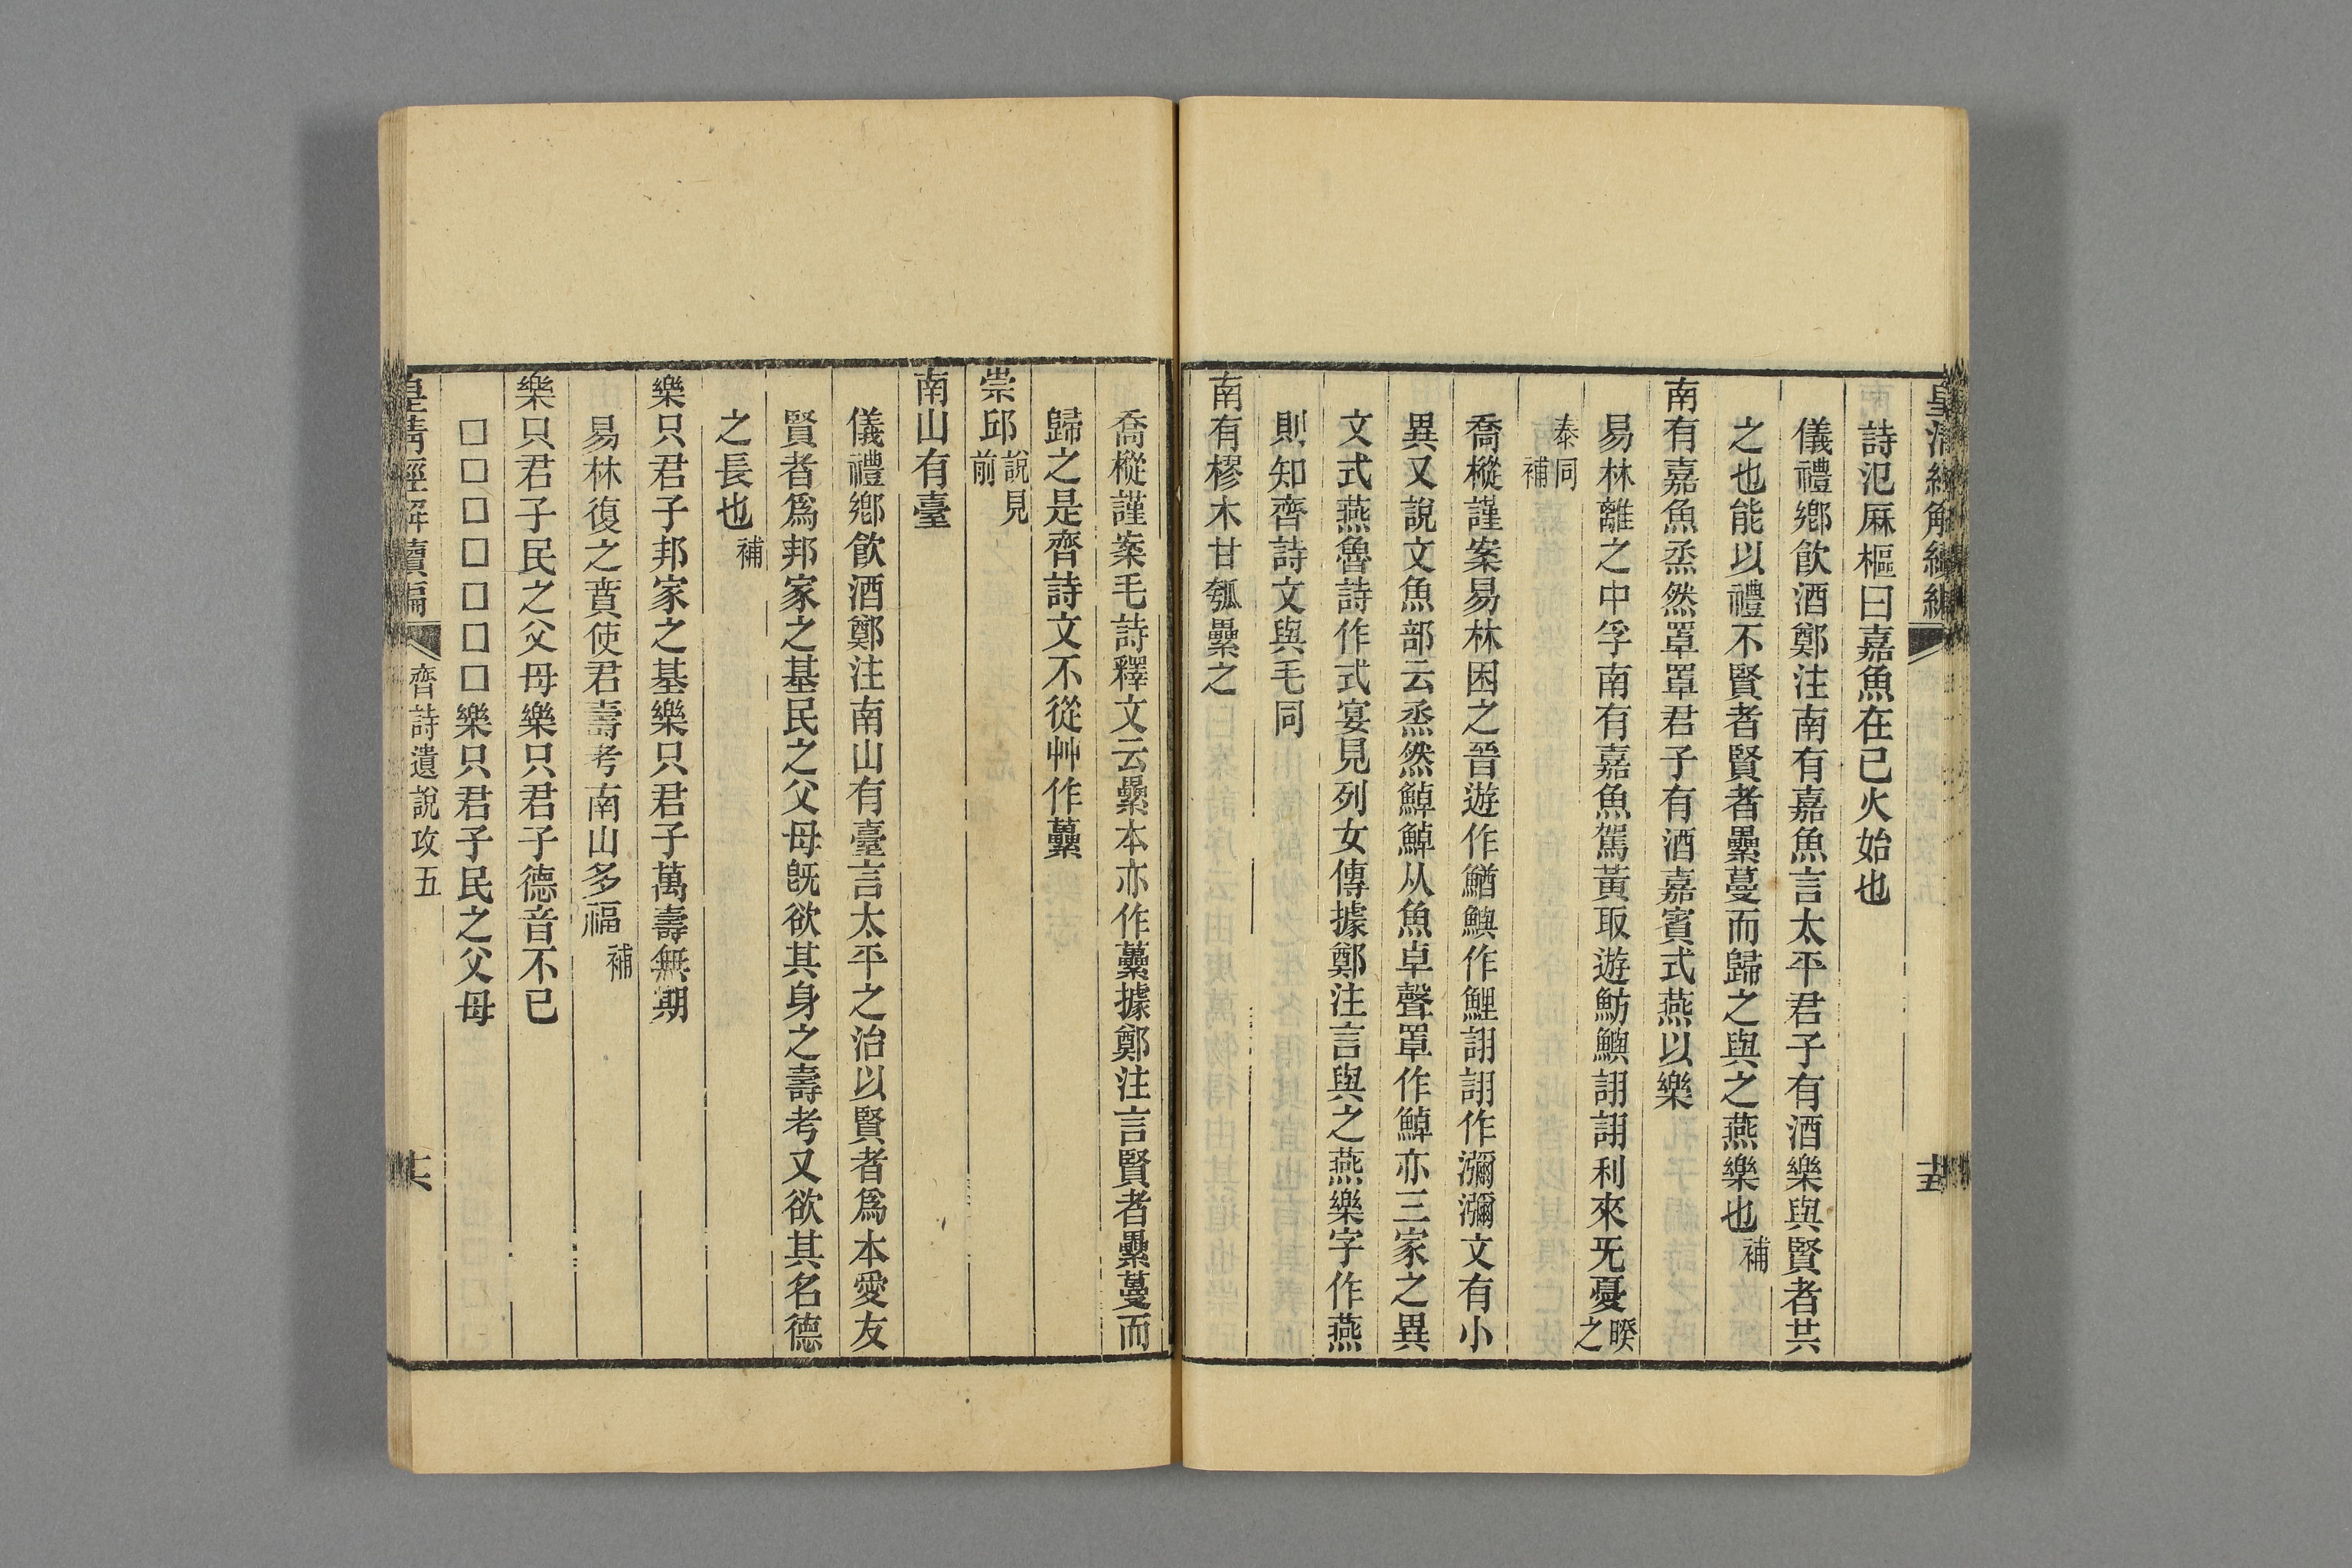 皇清經解續編
詩氾厤樞曰嘉魚在巳火始也
儀禮鄉飮酒鄭注南有嘉魚言太平君子有酒樂與賢者共
之也能以禮下賢者賢者纍蔓而歸之與之燕樂也補
南有嘉魚烝然罩罩君子有酒嘉賓式燕以樂
易林離之中孚南有嘉魚駕黃取遊魴鱮詡詡利來旡憂睽之
泰同補
喬樅謹案易林困之晉遊作鰌鱮作鯉詡詡作瀰瀰文有小
異又說文魚部云烝然鯙鯙从魚卓聲罩作鯙亦三家之異
文式燕魯詩作式宴見列女傳據鄭注言與之燕樂字作燕
則知齊詩文與毛同
南有樛木甘瓠纍之
喬樅謹案毛詩釋文云纍本亦作虆據鄭注言賢者纍蔓而
歸之是齊詩文不從艸作虆
崇邱說見前
南山有臺
儀禮鄉飮酒鄭注南山有臺言太平之治以賢者爲本愛友
賢者爲邦家之基民之父母旣欲其身之壽考又欲其名德
之長也補
樂只君子邦家之基樂只君子萬壽無期
易林復之賁使君壽考南山多福補
樂只君子民之父母樂只君子德音不已
□□□□□□□樂只君子民之父母
皇淸經解續編
齊詩遺說攷五